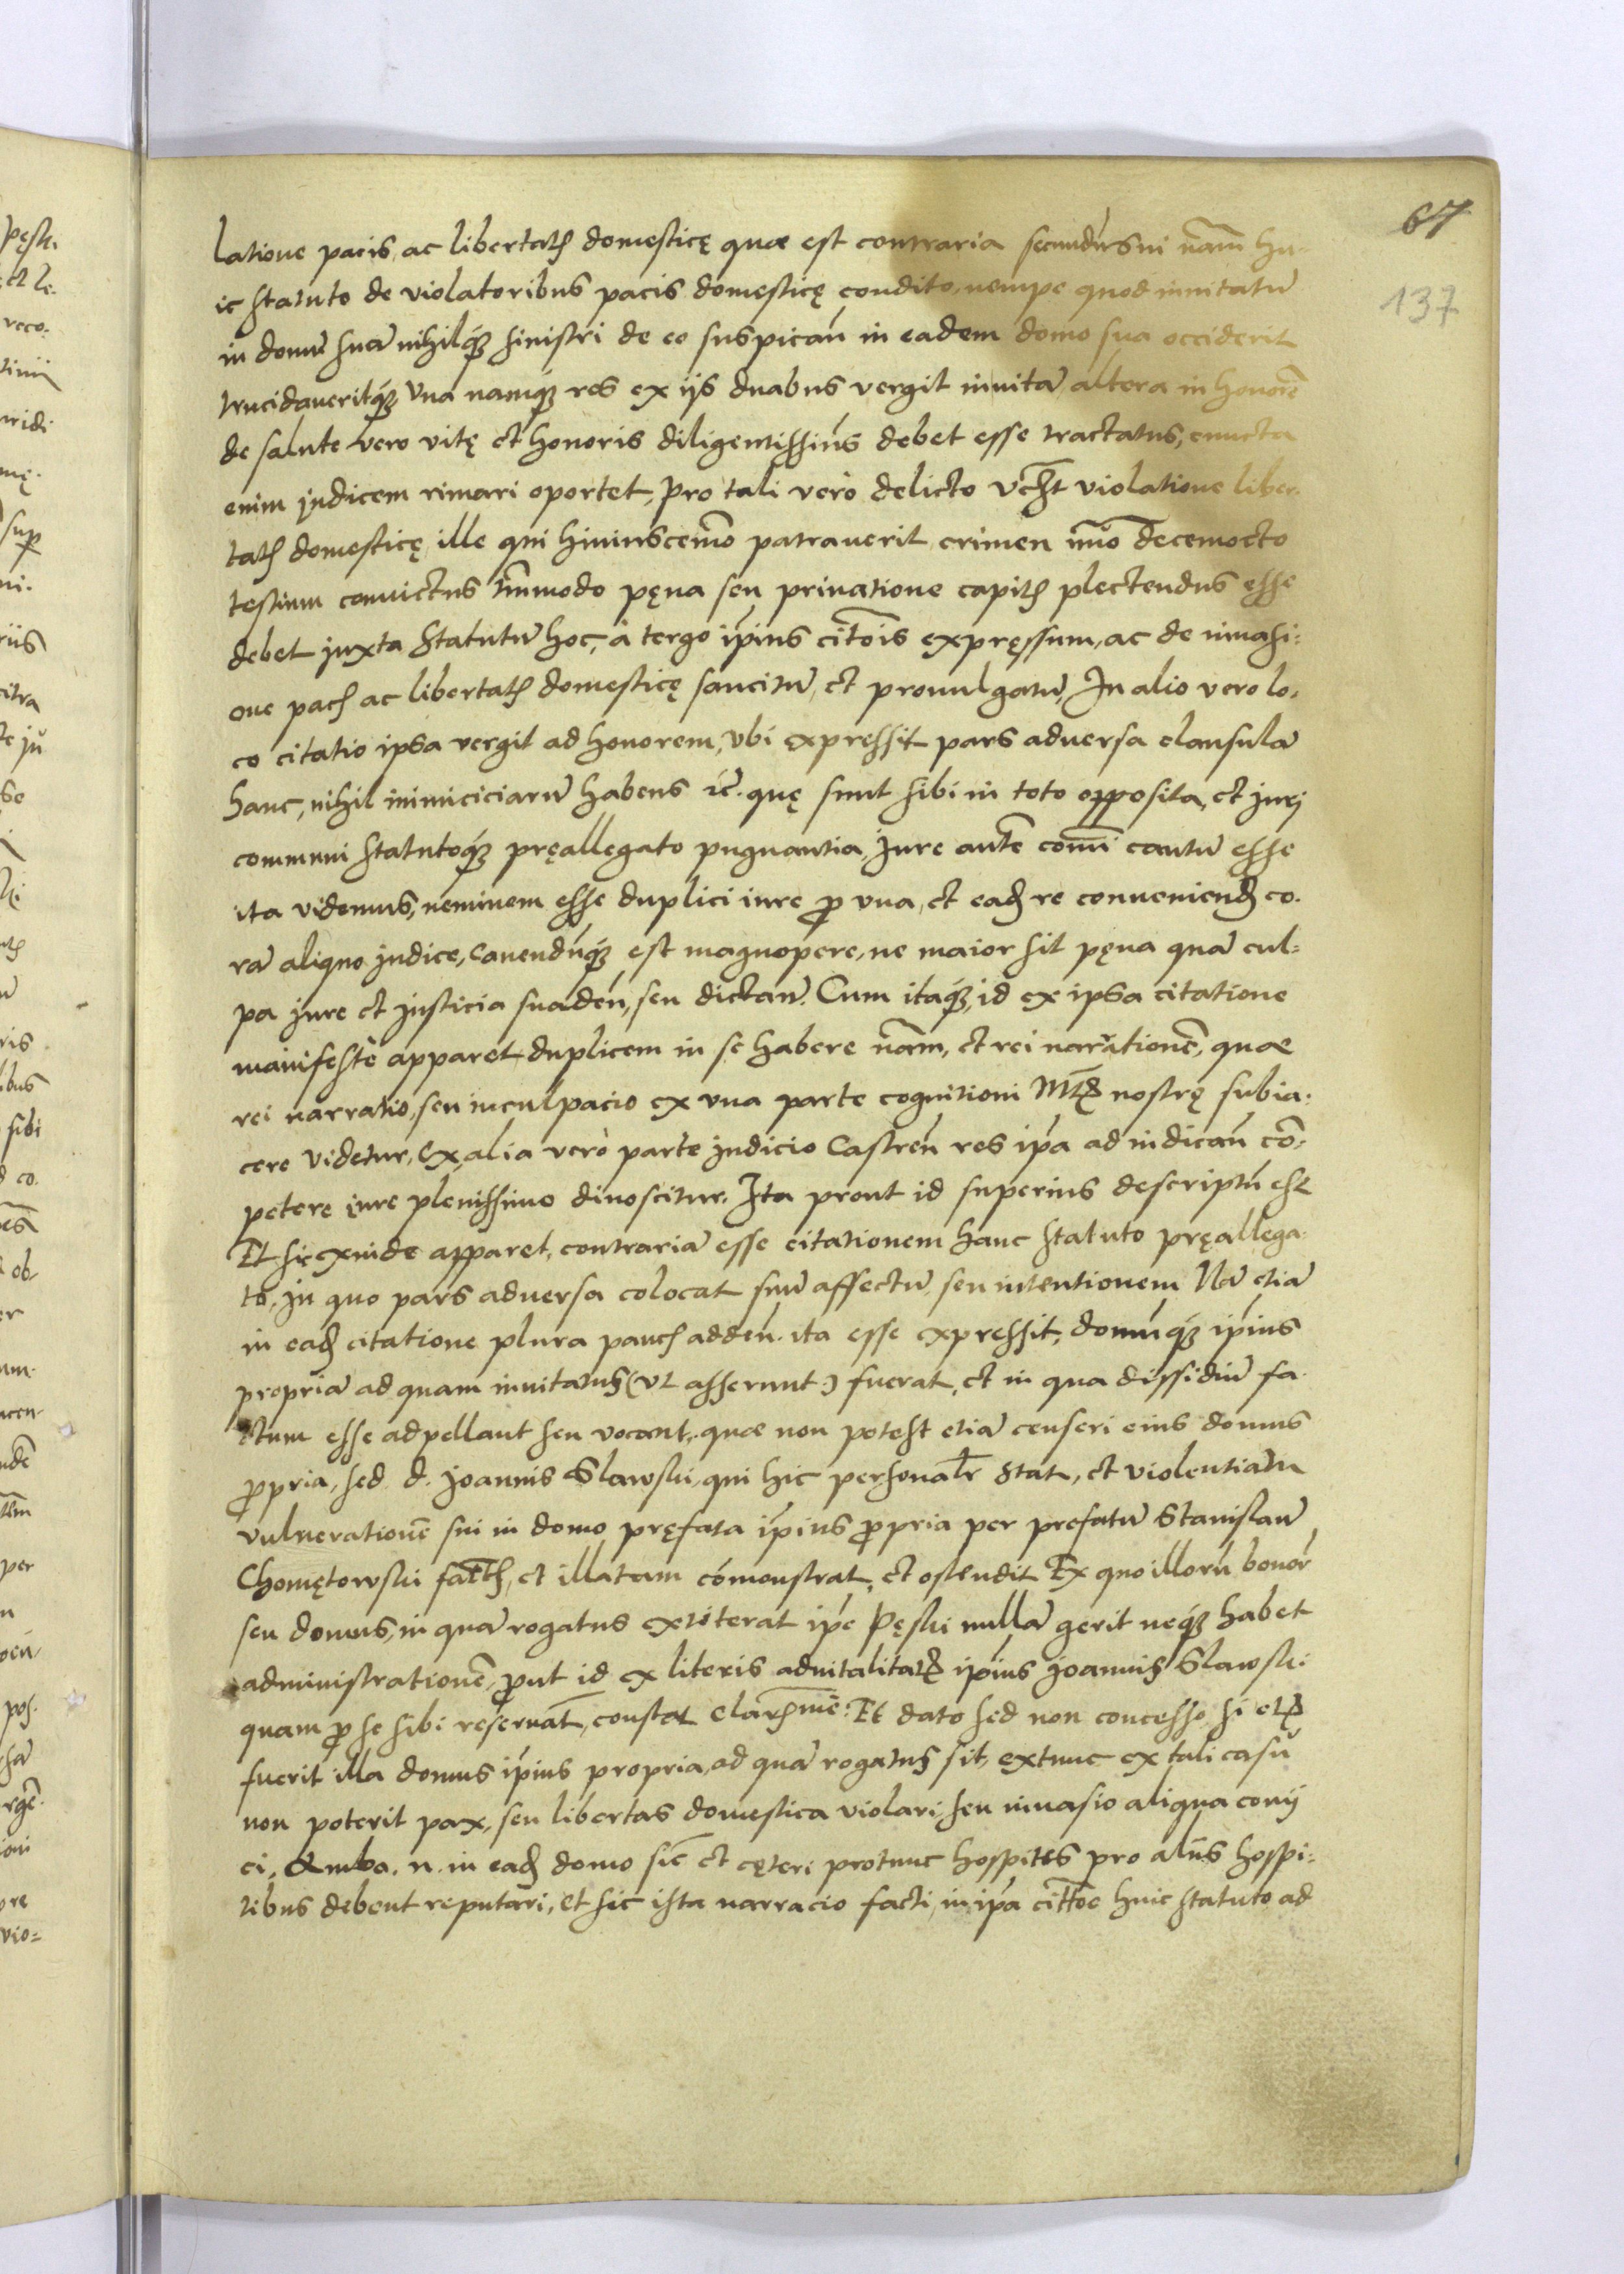 67
137
latione pacis, ac libertatis domesticę quæ est contraria secundũ sui nãm hu-
ic statuto de violatoribus pacis domesticę condito, nempe quod inuitatũ
in domũ suã nihilq̃ sinistri de eo suspicañ in eadem domo sua occiderit
trucidaueritq̃ Vna namq̃ res ex ijs duabus vergit in vitã altera in honorẽ
de salute vero vitę et honoris diligentissimũs debet esse tractatus, cuncta
enim judicem rimari oportet, Pro tali verò delicto vcz̃t violatione liber-
tatis domesticę, ille qui hiuiuscemõ patrauerit crimen nuõ decemocto
testium conuictus tm̃modo pęna seu priuatione capitis plectendus esse
debet juxta Statutũ hoc, à tergo ip̃ius citõis expręssum, ac de inuasi-
one pacis ac libertatis domesticę sancitũ, et promulgatũ, In alio vero lo-
co citatio ipsa vergit ad honorem, vbi expressit pars aduersa clausulã
hanc, nihil inimiciciarũ habens ꝛc̃. quę sunt sibi in toto opposita, et jurj
communi statutoq̃ pręallegato pugnantia, Jure autẽ com̃i cautũ esse
ita videmus, neminem esse duplici iure ꝓ vna, et ead̃ re conueniend̃ co-
rã aliquo judice, Cauendũq̃ est magnopere, ne maior sit pęna quã cul-
pa jure et justicia suadeñ, seu dictanĩ. Cum itaq̃, id ex ipsa citatione
manifestè apparet duplicem in se habere nãm, et rei narrationẽ, quæ
rei narratio, seu inculpacio ex vna parte cognitioni Mtis nostrę subia-
cere videtur, Ex alia verò parte judicio Castreñ res ip̃a adiudicañ cõ-
petere jure plenissimo dinoscitur. Ita prout id superius descriptũ est
Et sic exinde apparet, contrariã esse citationem hanc statuto pręallega-
to, Jn quo pars aduersa colocat suũ affectũ, seu intentionem Nã etiã
in ead̃ citatione plura paucis addeñ. ita esse expressit, domũq̃ ip̃ius
propriã ad quam inuitatus (vt asserunt) fuerat, et in qua dissidiũ fa-
ctum esse adpellant seu vocant, quæ non potest etiã censeri eius domus
ꝓpria, sed d. Joannis Slawski, qui hic personalr̃ stat, et violentiam
vulnerationẽ sui in domo pręfata ip̃ius ꝓpria per prefatũ Stanislaũ
Chomętowski fact̃, et illatam cõmonstrat, et ostendit Ex quo illorũ bonoŕ
seu domus, in quã rogatus extiterat ip̃e Pęski nullã gerit neq̃ habet
administrationẽ, ꝓut id ex literis aduitalitatis ip̃ius Joannis Slawski
quam ꝓ se sibi reseruat̃, constat clarissimè. Et dato sed non concesso, si etis
fuerit illa domus ip̃ius propria, ad quã rogatus sit, extunc ex tali casũ
non poterit pax, seu libertas domestica violari, seu inuasio aliqua conij
ci, Ambo. n. in ead̃ domo sic̃ et cęteri protunc hospites pro alijs hospi-
tibus debent reputari, et sic ista narracio facti, in ip̃a cittõe huic statuto ad